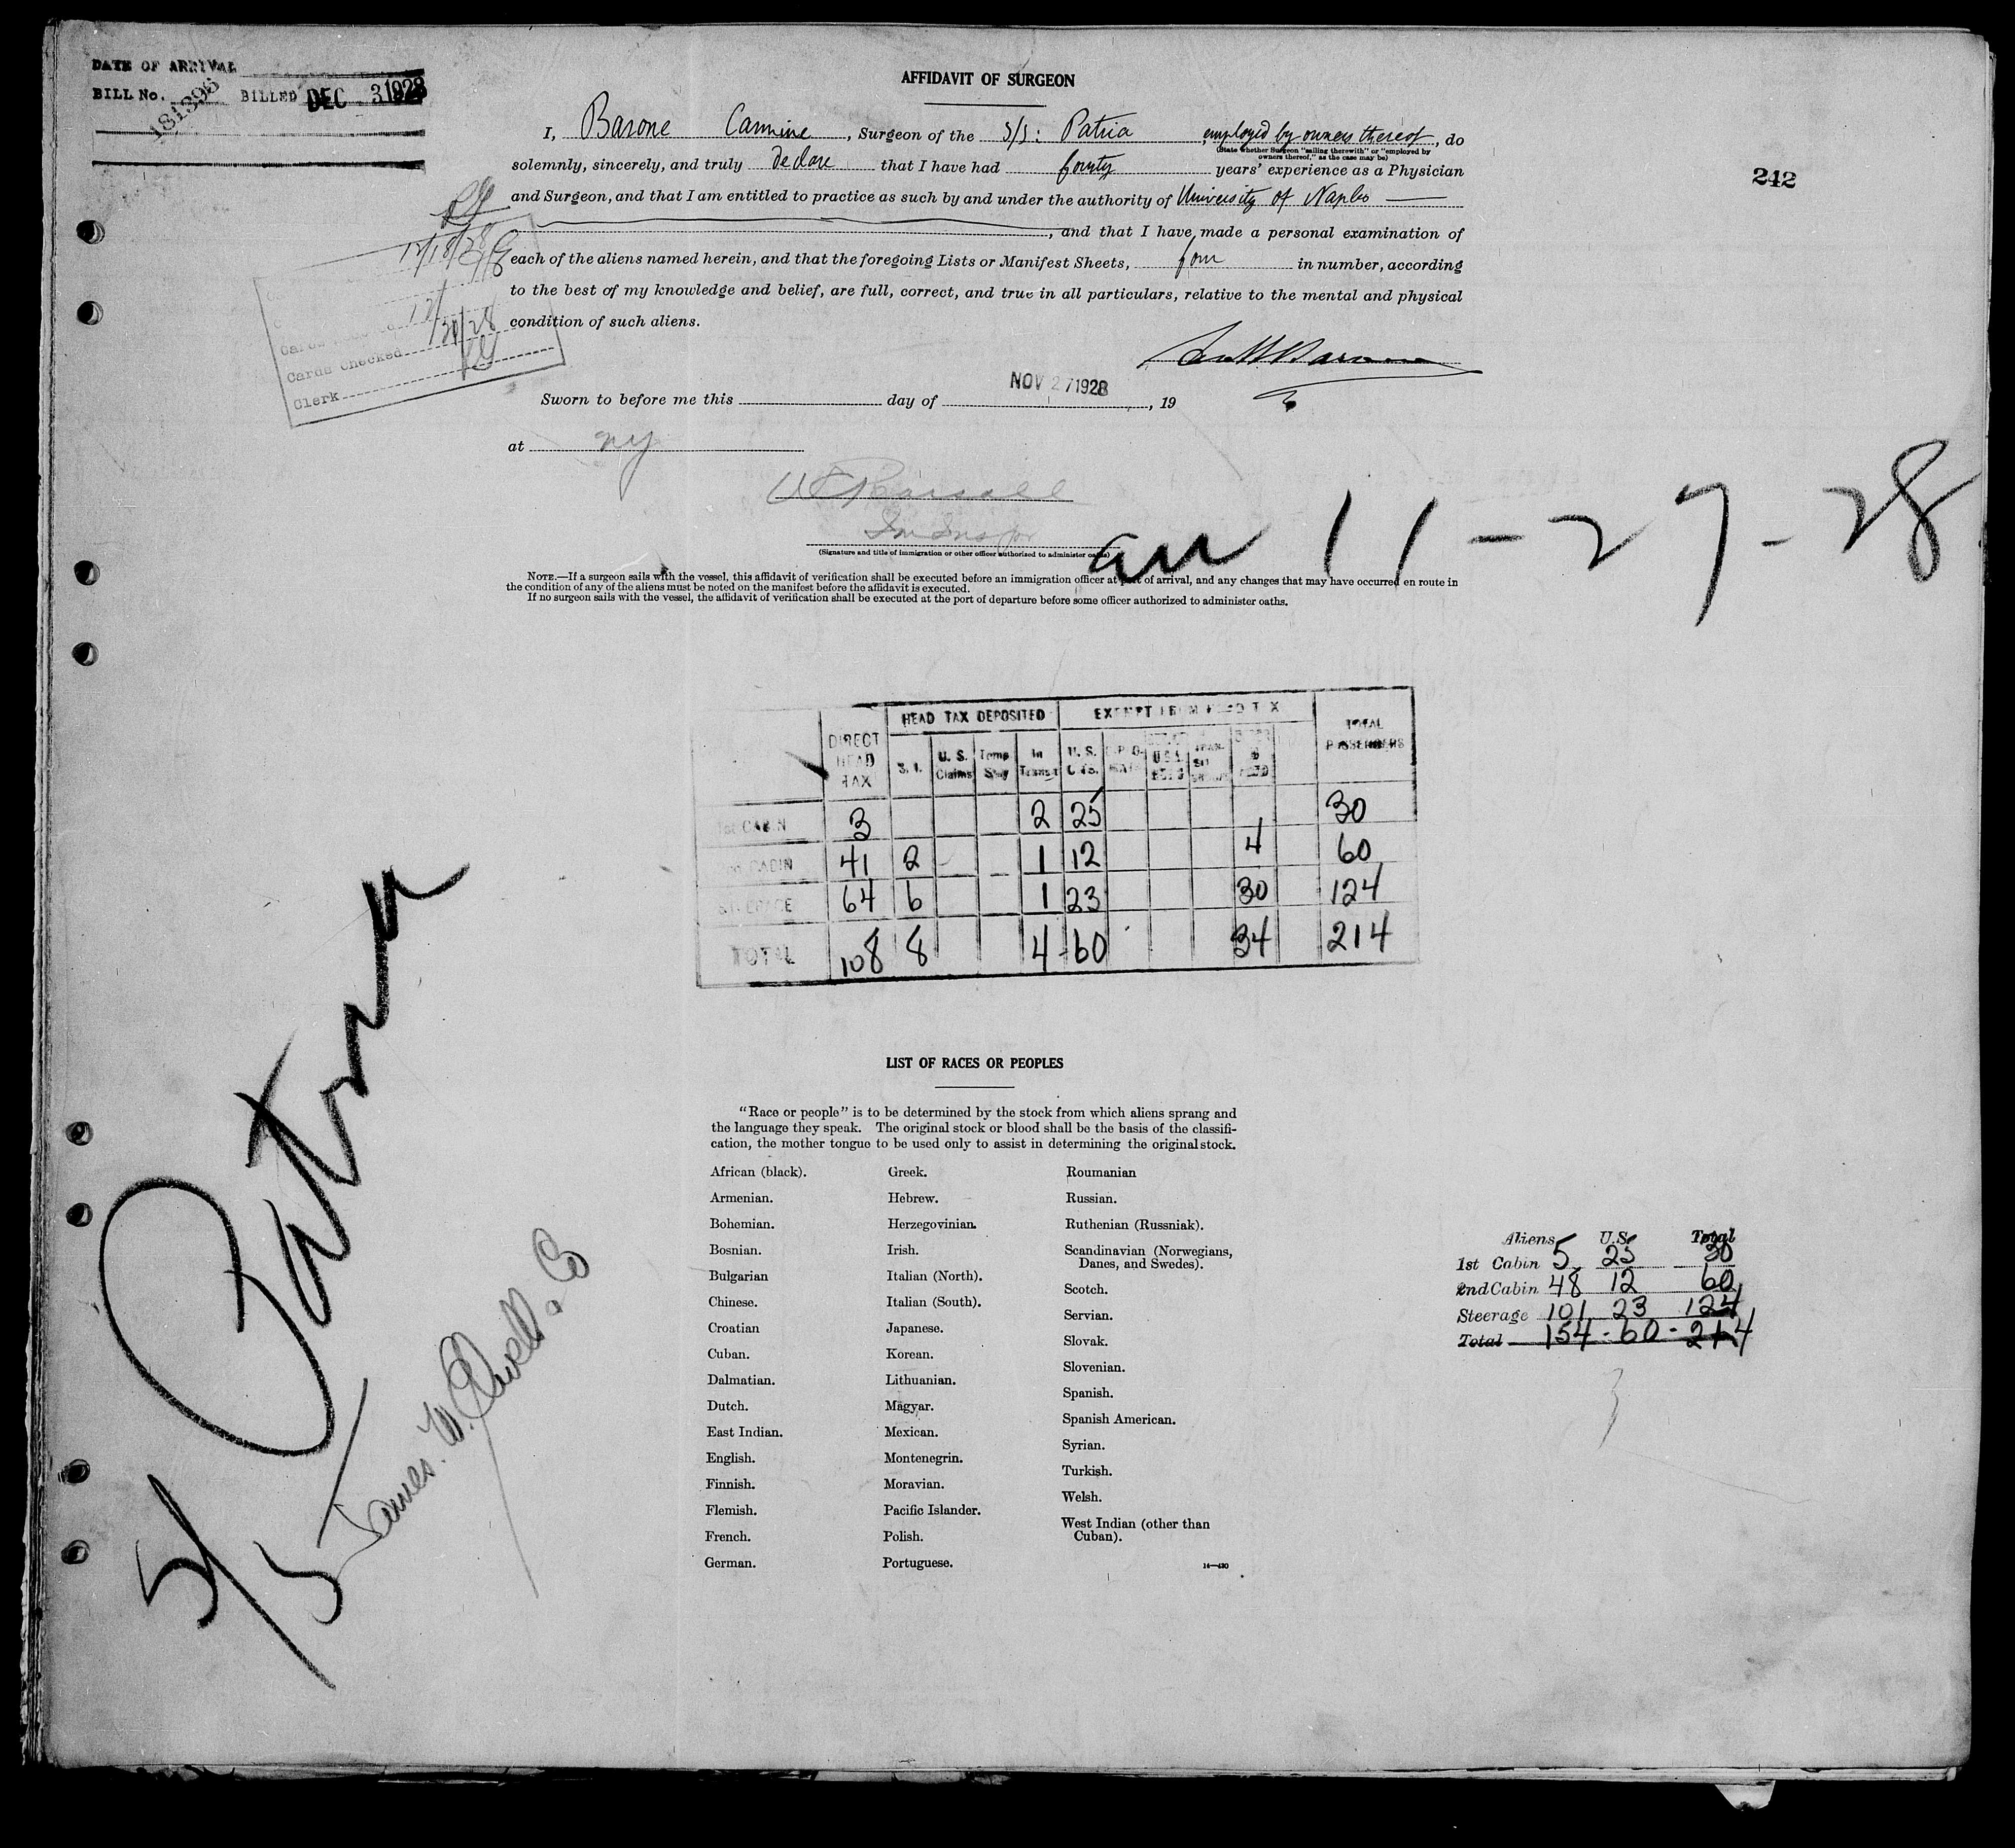 DATE OF ARRIVAL
BILL No. 181396 BILLED DEC 3 1928
242
AFFIDAVIT OF SURGEON
I, Barone Carmine, Surgeon of the S/S: Patria, employed by owners thereof, do
(State whether Surgeon "sailing therewith" or "employed by
owners thereof," as the case may be)
solemnly, sincerely, and truly declare that I have had fourty years' experience as a Physician
and Surgeon, and that I am entitled to practice as such by and under the authority of University of Naples
, and that I have made a personal examination of
each of the aliens named herein, and that the foregoing Lists or Manifest Sheets, four in number, according
to the best of my knowledge and belief, are full, correct, and true in all particulars, relative to the mental and physical
condition of such aliens.
12/18/28
12/30/28
Cards Checked
Clerk
Sworn to before me this day of NOV 27 1928, 19
at NY
(Signature and title of immigration or other officer authorized to administer oaths)
arr 11-27-28
NOTE.—If a surgeon sails with the vessel, this affidavit of verification shall be executed before an immigration officer at port of arrival, and any changes that may have occurred en route in
the condition of any of the aliens must be noted on the manifest before the affidavit is executed.
If no surgeon sails with the vessel, the affidavit of verification shall be executed at the port of departure before some officer authorized to administer oaths.
HEAD TAX DEPOSITED EXEMPT FROM HEAD TAX
DIRECT HEAD TAX S. I. U. S. Claims Temp Stay In Transit U. S. Cits. TOTAL PASSENGERS
1st CABIN 3 2 25 30
2nd CABIN 41 2 1 12 4 60
STEERAGE 64 6 1 23 30 124
TOTAL 108 8 4 60 34 214
S/S Patria
James. W. Elwell. Co
LIST OF RACES OR PEOPLES
"Race or people" is to be determined by the stock from which aliens sprang and
the language they speak. The original stock or blood shall be the basis of the classifi-
cation, the mother tongue to be used only to assist in determining the original stock.
African (black).
Armenian.
Bohemian.
Bosnian.
Bulgarian
Chinese.
Croatian
Cuban.
Dalmatian.
Dutch.
East Indian.
English.
Finnish.
Flemish.
French.
German.
Greek.
Hebrew.
Herzegovinian.
Irish.
Italian (North).
Italian (South).
Japanese.
Korean.
Lithuanian.
Magyar.
Mexican.
Montenegrin.
Moravian.
Pacific Islander.
Polish.
Portuguese.
Roumanian
Russian.
Ruthenian (Russniak).
Scandinavian (Norwegians,
Danes, and Swedes).
Scotch.
Servian.
Slovak.
Slovenian.
Spanish.
Spanish American.
Syrian.
Turkish.
Welsh.
West Indian (other than
Cuban).
14—430
Aliens U.S. Total
1st Cabin 5 25 30
2nd Cabin 48 12 60
Steerage 101 23 124
Total 154 - 60 - 214